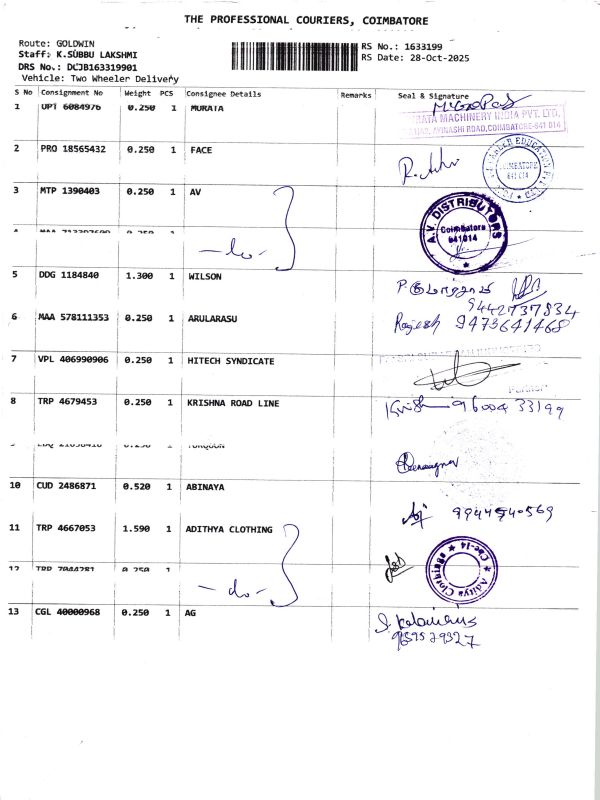 THE PROFESSIONAL COURIERS, COIMBATORE
Route: GOLDWIN
Staff: K.SUBBU LAKSHMI
DRS No.: DCJB163319901
Vehicle: Two Wheeler Delivery
RS No.: 1633199
RS Date: 28-Oct-2025
S No Consignment No Weight PCS Consignee Details Remarks Seal & Signature
1 UPT 6084976 0.250 1 MURATA
MACHINERY INDIA PVT. LTD.
AVINASHI ROAD, COIMBATORE-641 014
2 PRO 18565432 0.250 1 FACE
EDUCATION
COIMBATORE
641 014
3 MTP 1390403 0.250 1 AV
A.V. DISTRIBUTORS
Coimbatore
641014
-do-
5 DDG 1184840 1.300 1 WILSON
9442737834
6 MAA 578111353 0.250 1 ARULARASU
Rajesh 9473641468
7 VPL 406990906 0.250 1 HITECH SYNDICATE
8 TRP 4679453 0.250 1 KRISHNA ROAD LINE
Krish 96004 33199
10 CUD 2486871 0.520 1 ABINAYA
9944540569
11 TRP 4667053 1.590 1 ADITHYA CLOTHING
Aditya Clothing
Cbe-14
12 TRP 7044281 0.250 1
-do-
13 CGL 40000968 0.250 1 AG
9659579327